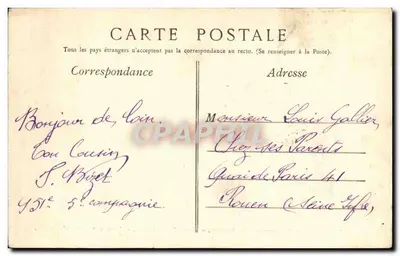 CARTE POSTALE
Tous les pays étrangers n'acceptent pas la correspondance au recto. (Se renseigner à la Poste).
Correspondance
Adresse
Bonjour de loin.
Ton Cousin
Bizet
5e compagnie
Monsieur Louis Gallier
Chez ses Parents
Quai de Paris 41
Rouen (Seine Infre)